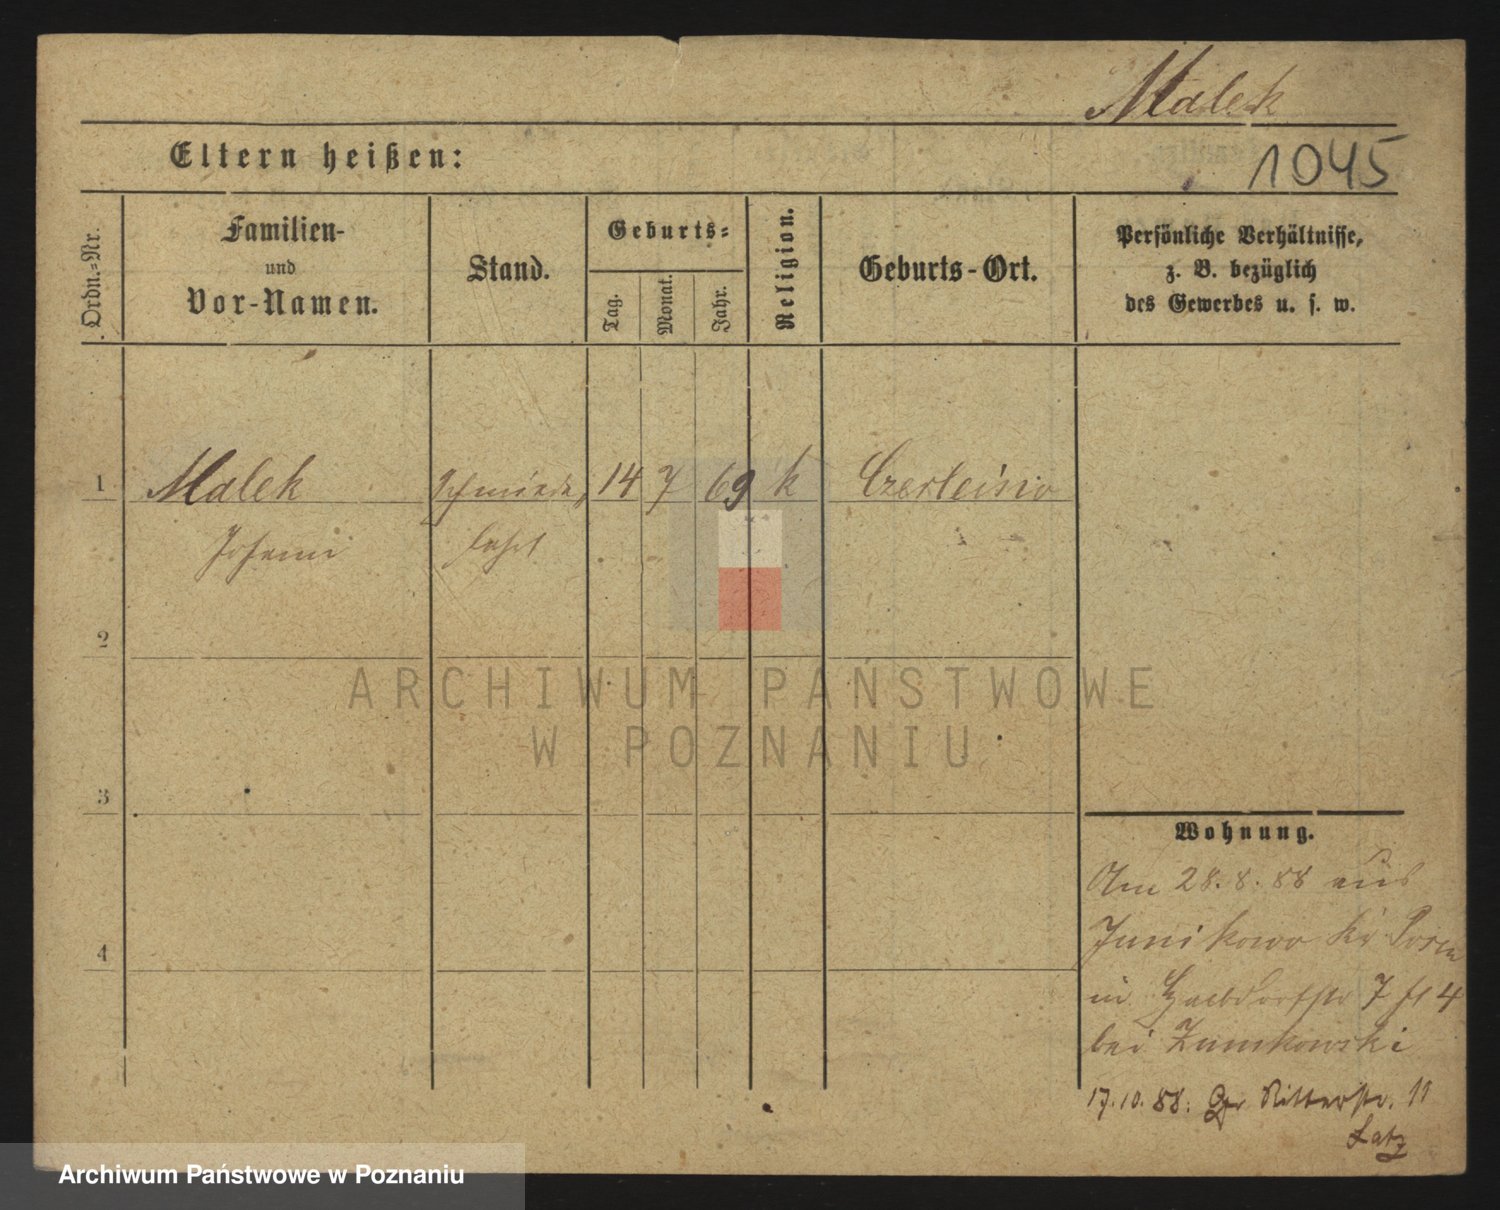 Malek
Eltern heißen:
1045
Ordn.=Nr.
Familien-
und
Vor-Namen.
Stand.
Geburts=
Tag.
Monat.
Jahr.
Religion.
Geburts-Ort.
Persönliche Verhältnisse,
z. B. bezüglich
des Gewerbes u. s. w.
1
Malek
14
7
69
k
Czerleino
2
3
4
Wohnung.
Am 28. 8. 88 aus
Junikowo Kr Posen
in Halbdorfstr 7
bei
17.10.88. Gr Ritterstr. 11
ARCHIWUM PAŃSTWOWE
W POZNANIU
Archiwum Państwowe w Poznaniu